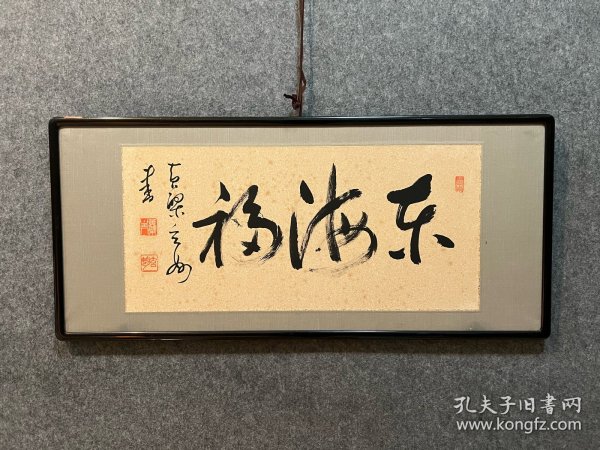 东海福
吉梁之州
書
孔夫子旧書网
www.kongfz.com